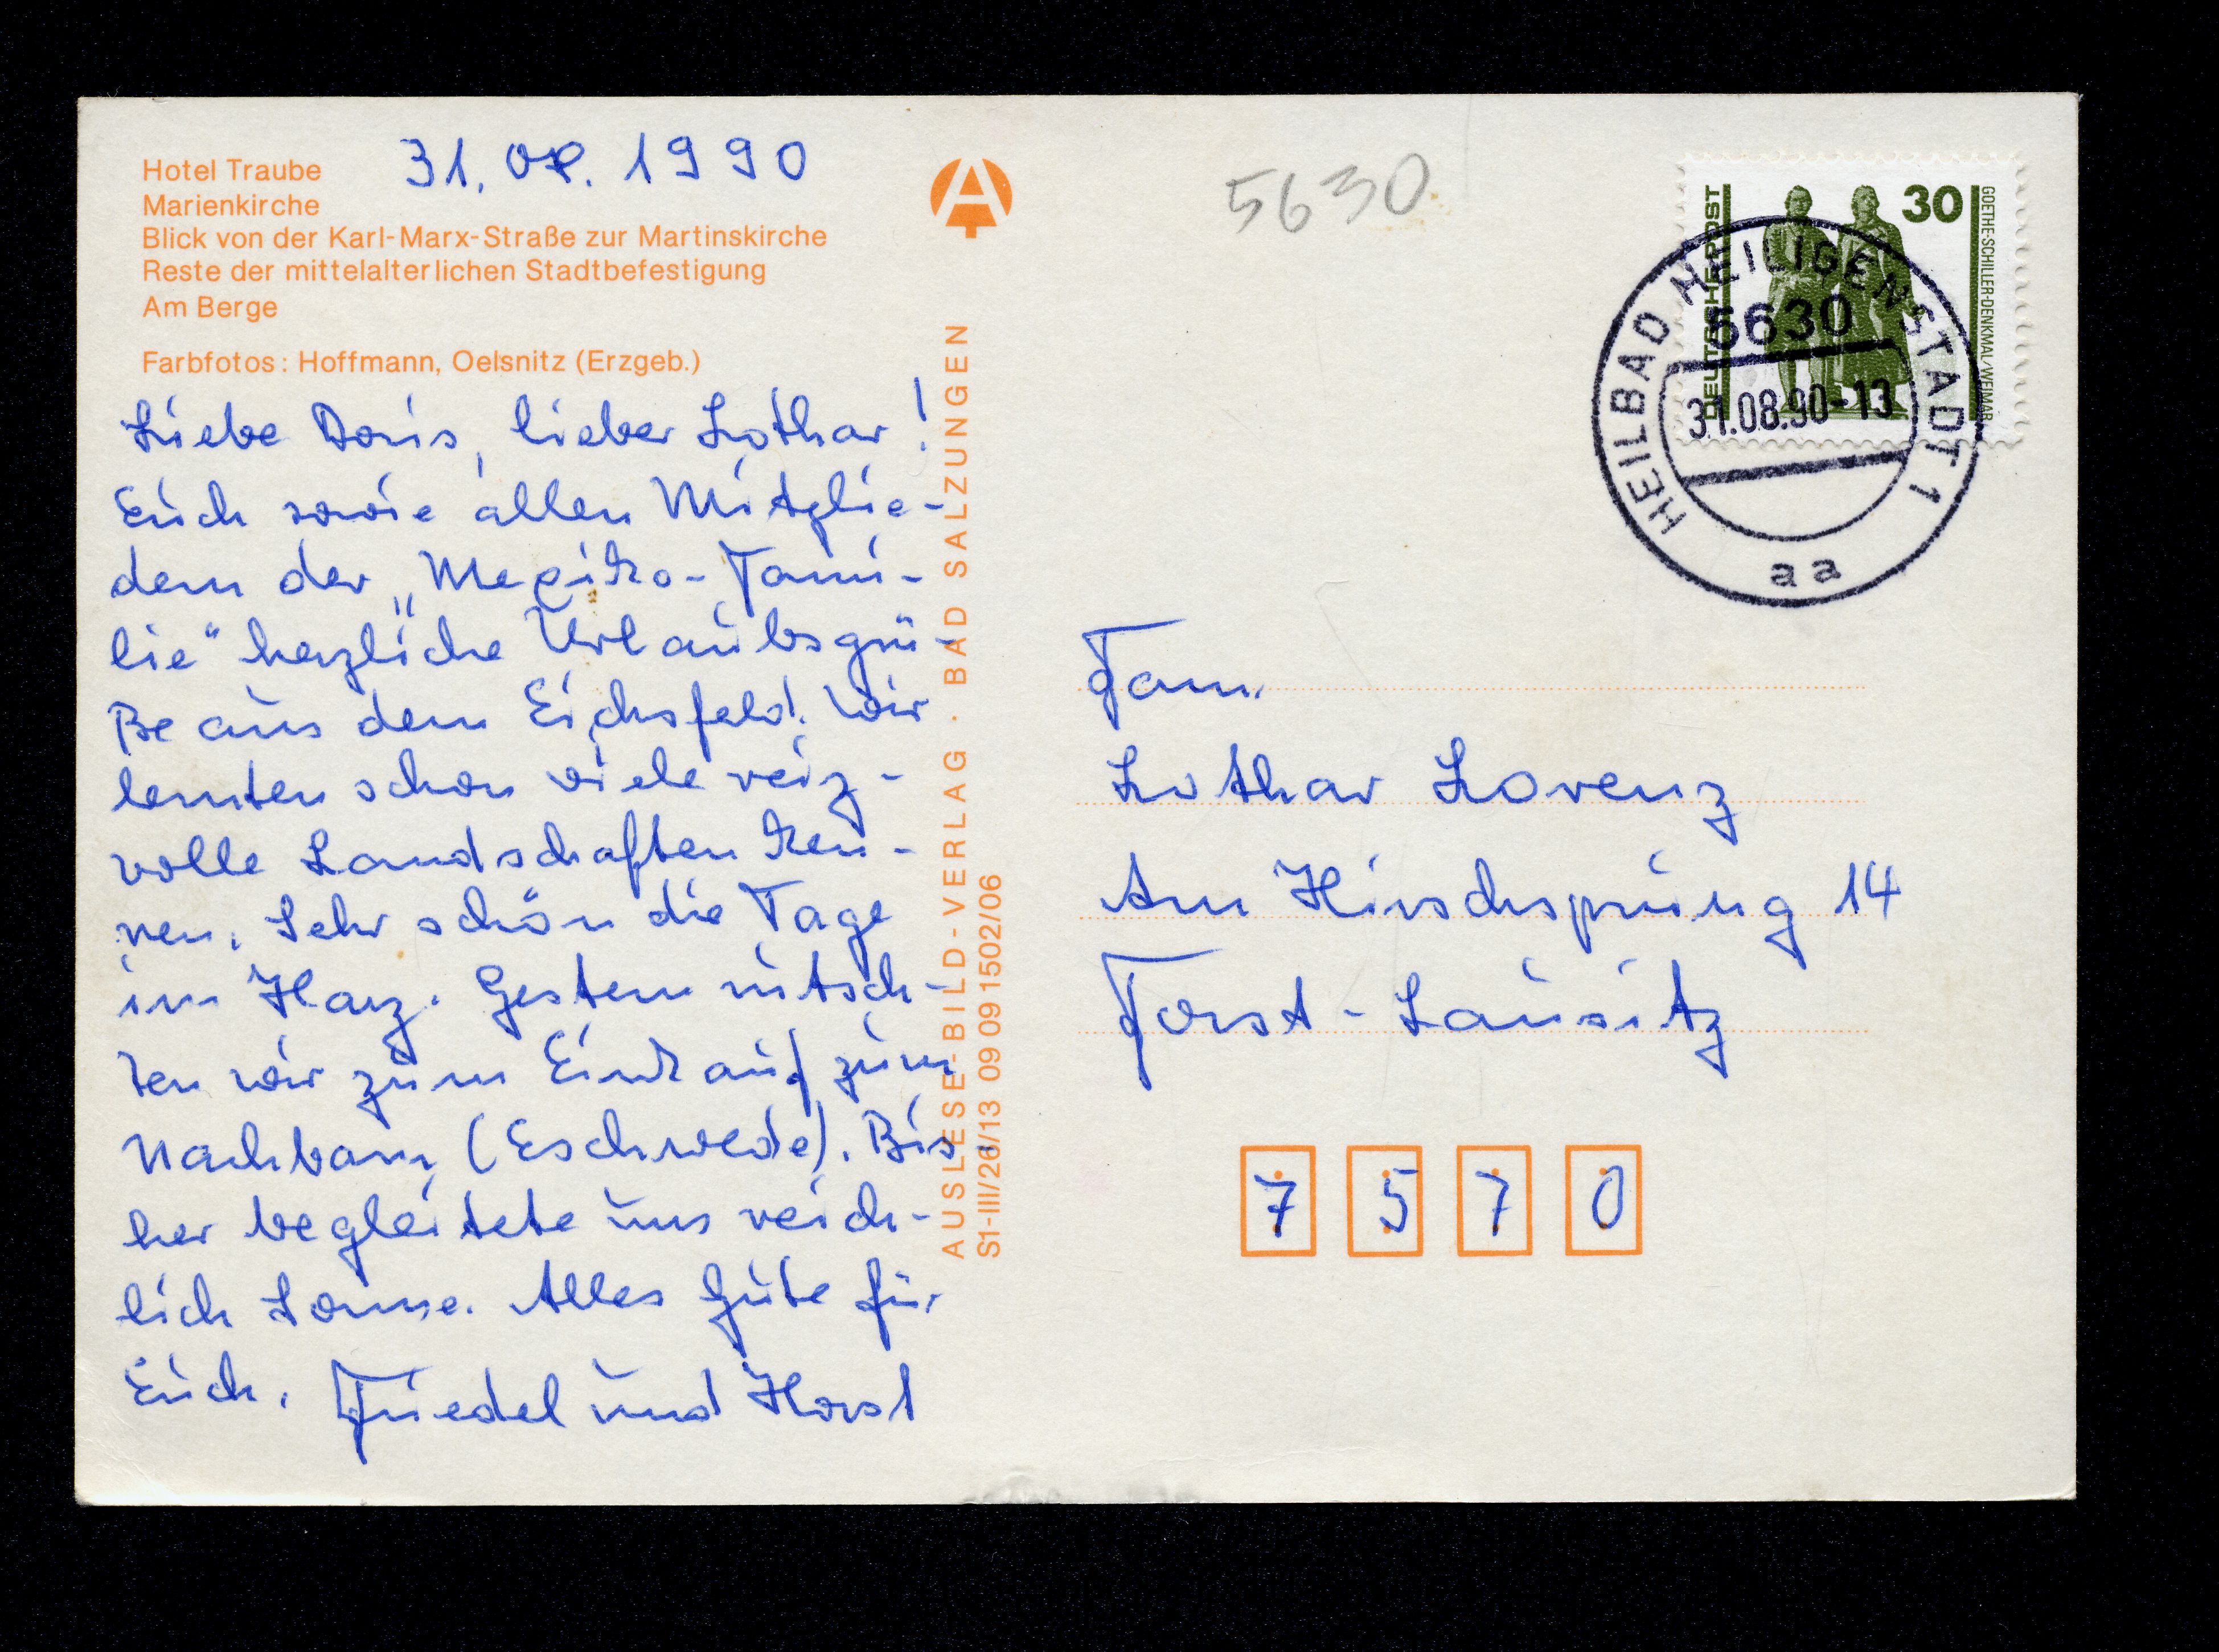 Hotel Traube
Marienkirche
Blick von der Karl-Marx-Straße zur Martinskirche
Reste der mittelalterlichen Stadtbefestigung
Am Berge
Farbfotos: Hoffmann, Oelsnitz (Erzgeb.)
31. 08. 1990
Liebe Doris, lieber Lothar!
Euch sowie allen Mitglie-
dern der „Mexiko-Fami-
lie" herzliche Urlaubsgrü-
ße aus dem Eichsfeld. Wir
lernten schon viele reiz-
volle Landschaften ken-
nen. Sehr schön die Tage
im Harz. Gestern rutsch-
ten wir zum Einkauf zum
Nachbarn (Eschwede). Bis
her begleitete uns reich-
lich Sonne. Alles Gute für
Euch. Friedel und Horst
AUSLESE-BILD-VERLAG · BAD SALZUNGEN
S1-III/26/13 09 09 1502/06
5630
DEUTSCHE POST
30
GOETHE-SCHILLER-DENKMAL/WEIMAR
HEILBAD HEILIGENSTADT 1
5630
31.08.90-13
aa
Fam.
Lothar Lorenz
Am Hirschsprung 14
Forst-Lausitz
7 5 7 0